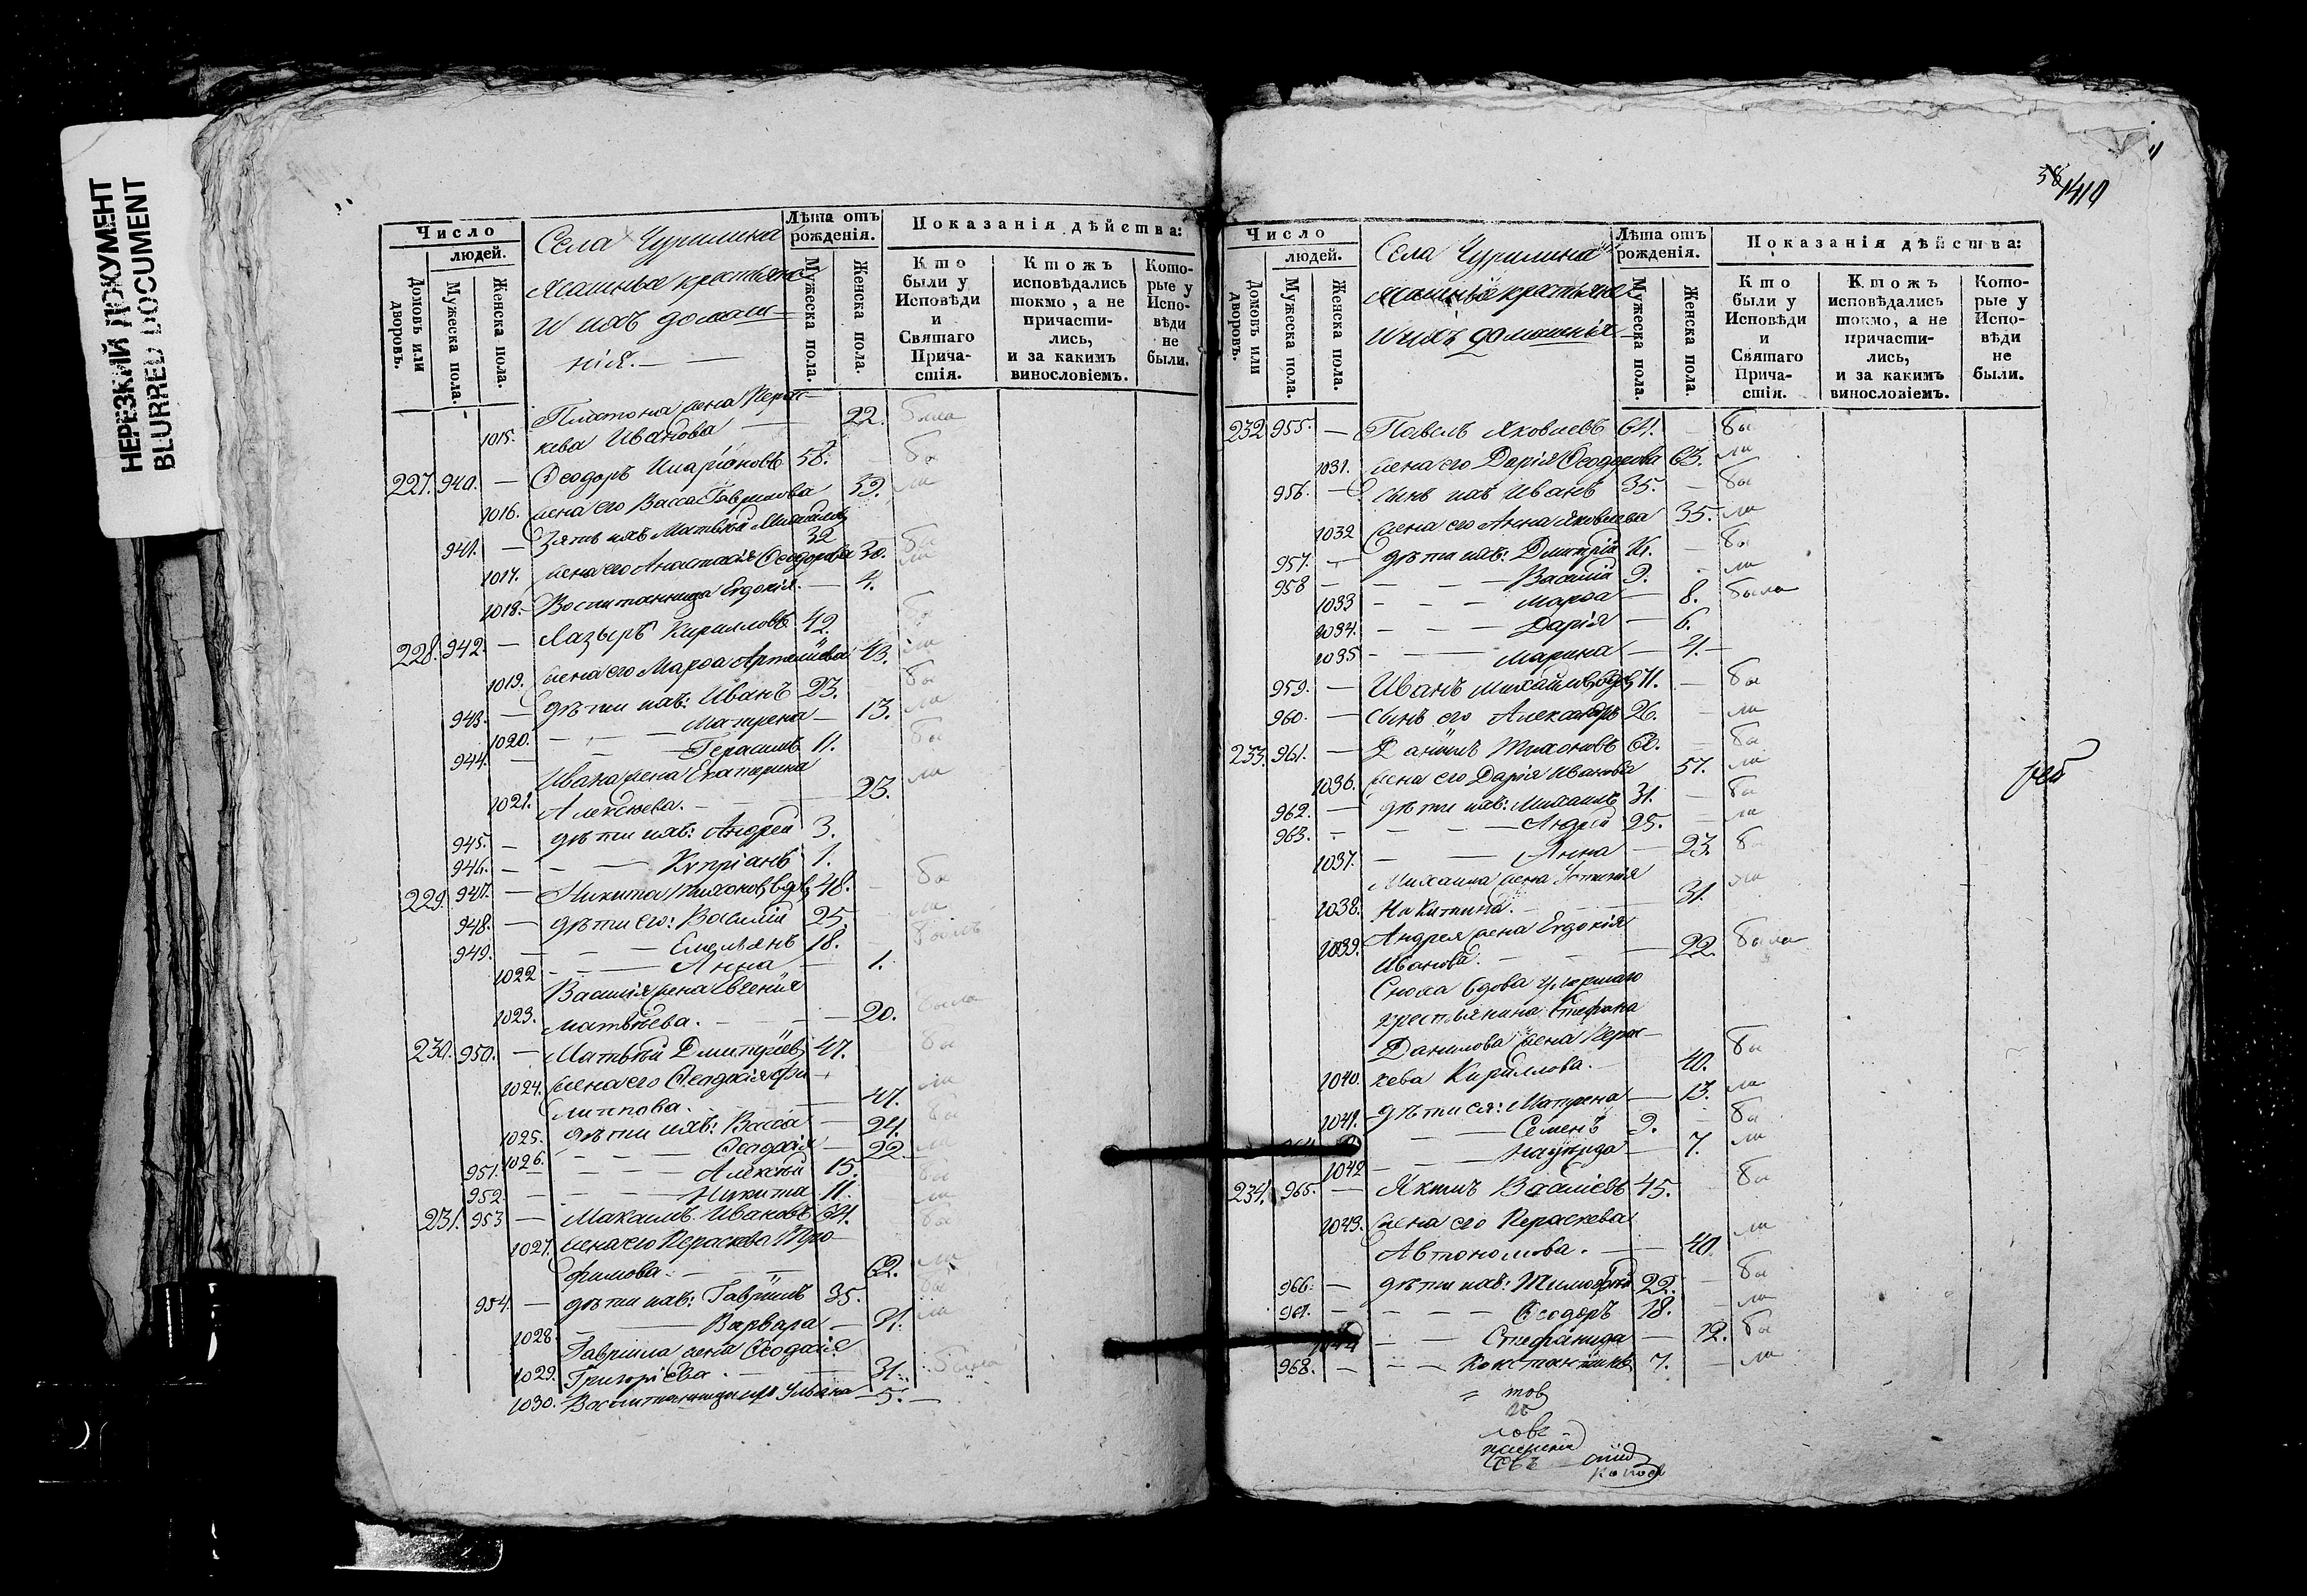 НЕРЕЗКИЙ ДОКУМЕНТ
BLURRED DOCUMENT
Число
людей.
Домовъ или дворовъ.
Мужеска пола.
Женска пола.
Села Чурилина
Ясашныя крестьяне
и ихъ домаш-
нія. —
Лѣта отъ рожденія.
Мужеска пола.
Женска пола.
Показанія дѣйства:
Кто были у Исповѣди и Святаго Прича- стія.
Ктожъ исповѣдались токмо, а не причасти- лись, и за какимъ винословіемъ.
Кото- рые у Испо- вѣди не были.
Платона жена Парас-
1015. кева Иванова — 22. была
227. 940. — Ѳеодоръ Иларіоновъ 58. бы
1016. жена его Васса Гаврилова 39. ли
941. — Зять ихъ Матвѣй Михайловъ 32 бы
1017. жена его Анастасія Ѳеодорова 30. ли
1018. Воспитанница Евдокія. — 4.
228. 942. — Лазырь Кирилловъ 42. бы
1019. жена его Марѳа Артемьева 43. ли
943. — дѣти ихъ: Иванъ 23. бы
1020. — Матрена — 13. ли
944. — Герасимъ 11. бы
Ивана жена Екатерина
1021. Алексѣева. — 23. ли
945. — дѣти ихъ: Андрей 3.
946. — Кѵпріанъ 1.
229. 947. — Никита Тихоновъ, вдов 48. бы
948. — дѣти его: Василій 25. ли
949. — Емельянъ 18. былъ
1022 — Анна — 1.
Василія жена Евгенія
1023. Матвѣева. — 20. была
230. 950. — Матвѣй Дмитріев 47. бы
1024. жена его Ѳеодосія Фи-
липпова. — 47. ли
1025. дѣти ихъ: Васса — 24. бы
1026. — Ѳеодосія — 22. ли
951. — Алексѣй 15. бы
952. — Никита 11. ли
231. 953 — Максимъ Ивановъ 64. бы
1027. жена его Параскева Тро-
фимова. — 62. ли
954. — дѣти ихъ: Гавріилъ 35. бы
1028. — Варвара — 21. ли
Гавріила жена Ѳеодосія
1029. Григорьева. — 31. была
1030. Воспитанница ихъ Ульяна — 5. —
58
1410
Число
людей.
Домовъ или дворовъ.
Мужеска пола.
Женска пола.
Села Чурилина
Ясашныя крестьяне
и ихъ домашнія
Лѣта отъ рожденія.
Мужеска пола.
Женска пола.
Показанія дѣйства:
Кто были у Исповѣди и Святаго Прича- стія.
Ктожъ исповѣдались токмо, а не причасти- лись, и за какимъ винословіемъ.
Кото- рые у Испо- вѣди не были.
232 955. — Павелъ Яковлевъ 64. бы
1031. жена его Дарія Ѳеодорова 63. ли
956. — сынъ ихъ Иванъ 35. — бы
1032 жена его Анна Яковлева 35. ли
957. — дѣти ихъ: Дмитрій бы
958 — Василій 9. ли
1033 — Марѳа — 8. была
1034. — Дарія — 6.
1035 — Марина — 4. —
959. — Иванъ Михайловъ, вдов 71. — бы
960. — сынъ его Александръ 26. — ли
233. 961. — Даніилъ Тихоновъ 60. — бы
1036. жена его Дарія Иванова 57. ли
962. — дѣти ихъ: Михаилъ 31. — бы
963. — Андрей 25. — ли
1037. — Анна — 23. бы
Михаила жена Устинія
1038. Никитина. — 31. ли
Андрея жена Евдокія
1039. Иванова. — 22. была
Сноха вдова умершаго
крестьянина Стефана
Данилова жена Парас-
1040. кева Кириллова. — 40. бы
1041. дѣти ея: Матрена — 13. ли
— Семенъ 9. бы
1042 — 7. ли
234. 965. — Якимъ Васильевъ 45. бы
1043. жена его Параскева
Автономова. — 40. ли
966. — дѣти ихъ: Тимоѳей 22. — бы
967. — Ѳеодоръ 18. — ли
1044 — Стефанида — 12. бы
968. — Константинъ 7. — ли